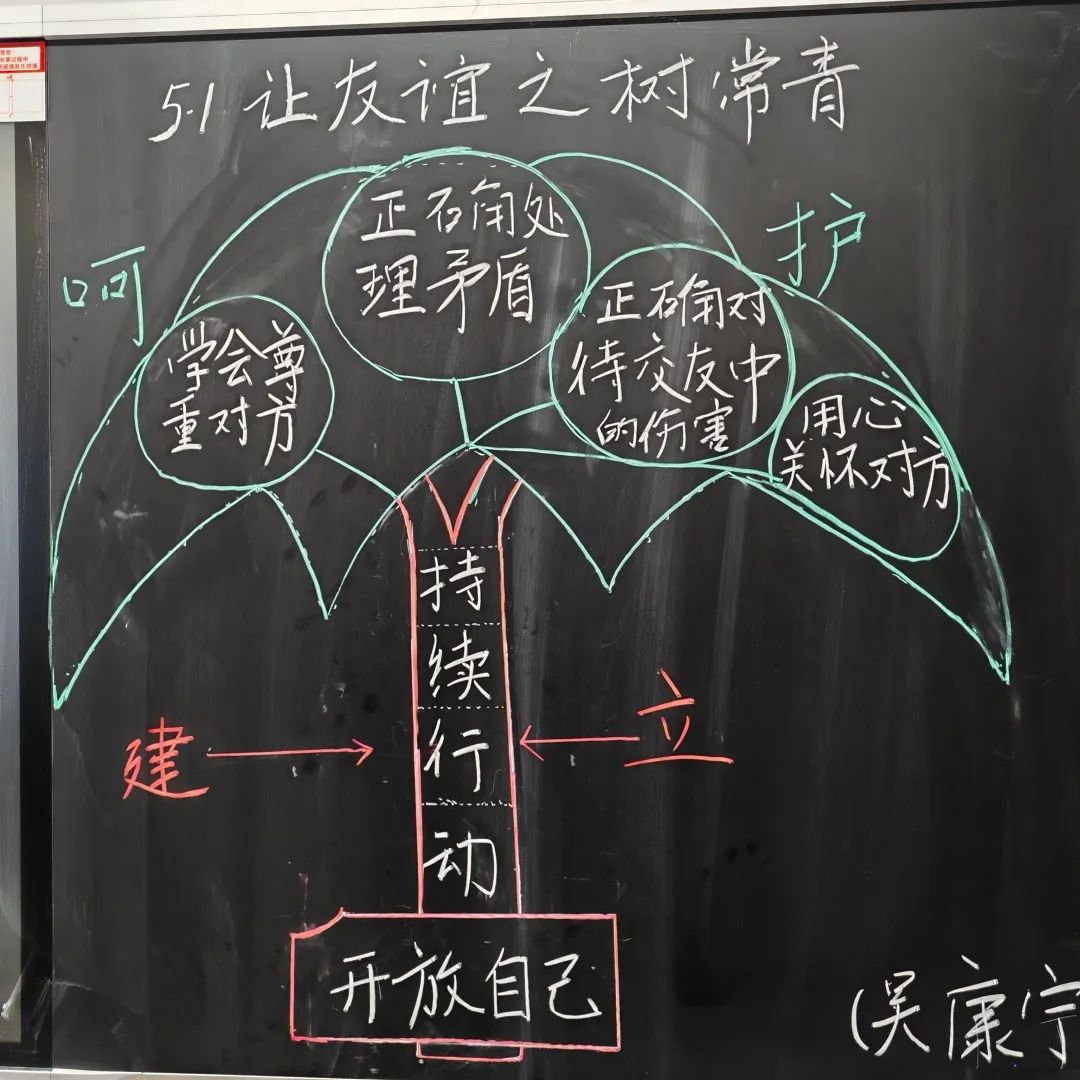 5.1 让友谊之树常青
呵
护
正确处
理矛盾
学会尊
重对方
正确对
待交友中
的伤害
用心
关怀对方
持
续
行
动
建
立
开放自己
(吴康宁